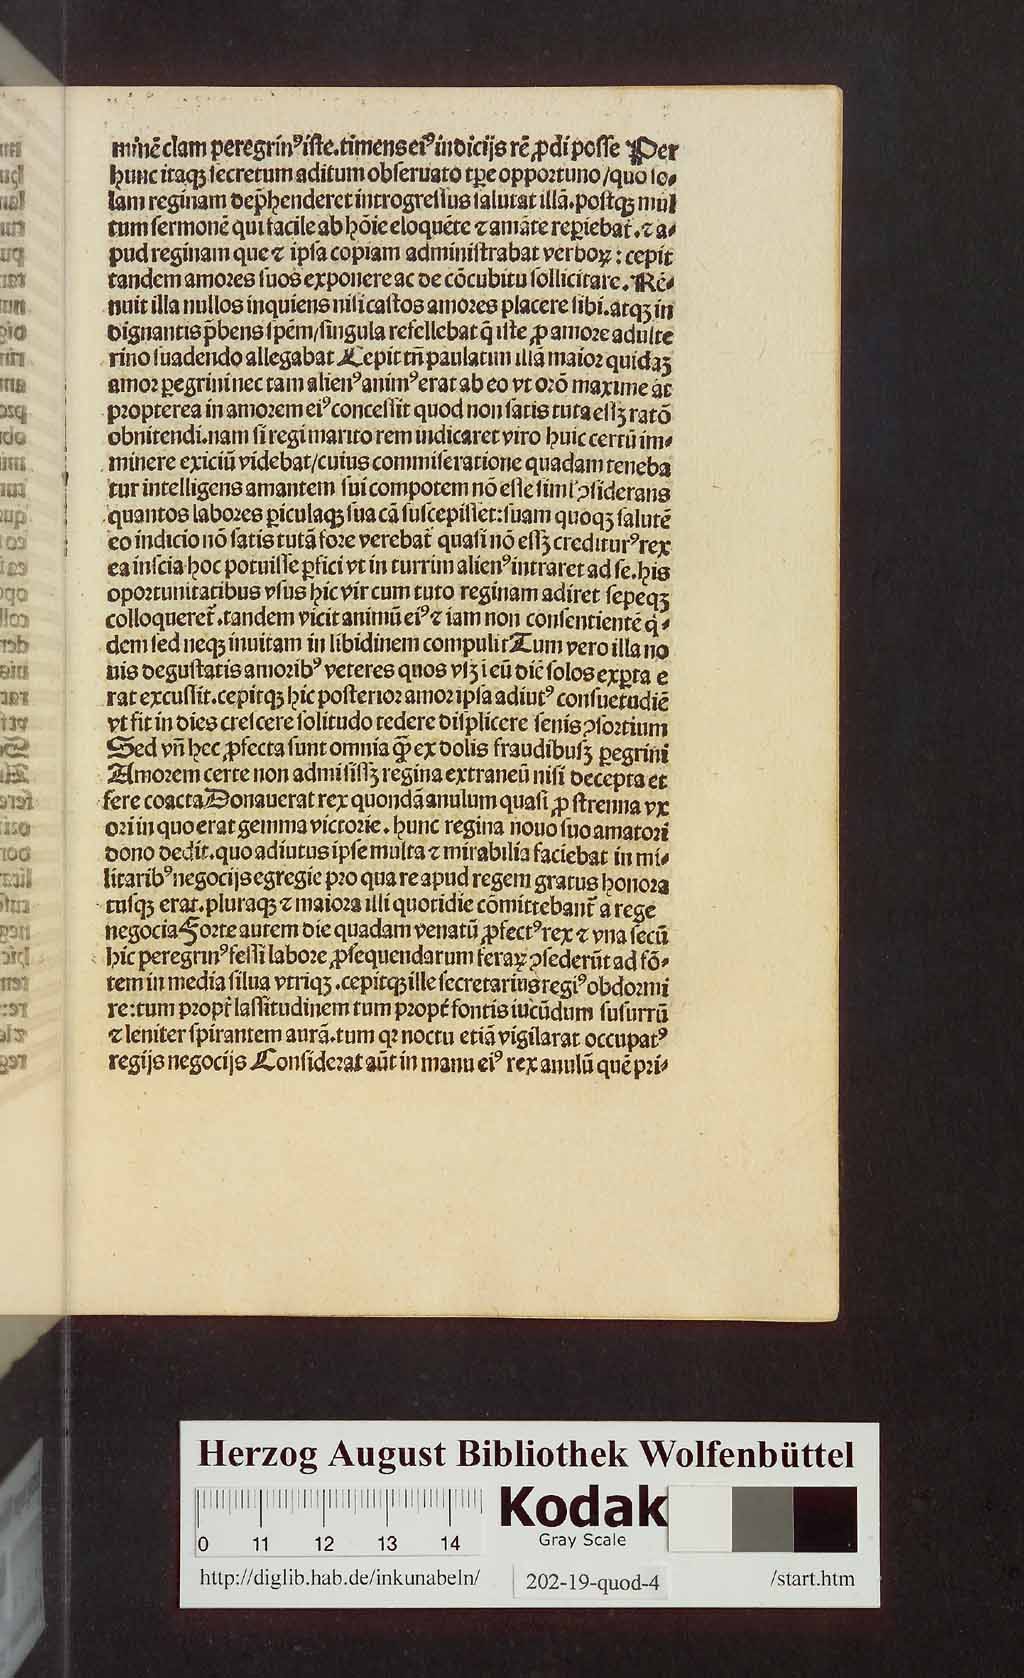 minē clam peregrinꝰ iste. timens eiꝰ indicijs rē ꝓdi posse Per
hunc itaqꝫ secretum aditum obseruato tꝑe opportuno/quo so⸗
lam reginam dep̄henderet introgressus salutat illā. postqꝫ mul
tum sermonē qui facile ab hōie eloquēte ⁊ amāte reꝑiebat̄. ⁊ a⸗
pud reginam que ⁊ ipsa copiam administrabat verboꝝ: cepit
tandem amores suos exponere ac de cōcubitu sollicitare. Rē⸗
nuit illa nullos inquiens nisi castos amores placere sibi. atqꝫ in
dignantis p̄bens spēm/singula refellebat q̄ iste ꝓ amore adulte
rino suadendo allegabat Cepit tn̄ paulatim illā maior quidaꝫ
amor ꝑegrini nec tam alienꝰ animꝰ erat ab eo vt orō maxime at
propterea in amorem eiꝰ concessit quod non satis tuta essꝫ ratō
obnitendi. nam si regi marito rem indicaret viro huic certū im⸗
minere exiciū videbat/cuius commiseratione quadam teneba
tur intelligens amantem sui compotem nō esse siml̄ ꝯsiderans
quantos labores ꝑiculaqꝫ sua cā suscepisset: suam quoqꝫ salutē
eo indicio nō satis tutā fore verebat̄ quasi nō essꝫ crediturꝰ rex
ea inscia hoc potuisse ꝑfici vt in turrim alienꝰ intraret ad se. his
oportunitatibus vsus hic vir cum tuto reginam adiret sepeqꝫ
colloqueret̄. tandem vicit animū eiꝰ ⁊ iam non consentientē q̇⸗
dem sed neqꝫ inuitam in libidinem compulit Tum vero illa no
uis degustatis amoribꝰ veteres quos vsꝫ i eū diē solos exꝑta e
rat excussit. cepitqꝫ hic posterior amor ipsa adiutꝰ consuetudiē
vt fit in dies crescere solitudo tedere displicere senis ꝯsortium
Sed vn̄ hec ꝓfecta sunt omnia qꝫ̄ ex dolis fraudibusꝫ ꝑegrini
Amorem certe non admisissꝫ regina extraneū nisi decepta et
fere coacta Donauerat rex quondā anulum quasi ꝓ strenna vx
ori in quo erat gemma victorie. hunc regina nouo suo amatori
dono dedit. quo adiutus ipse multa ⁊ mirabilia faciebat in mi⸗
litaribꝰ negocijs egregie pro qua re apud regem gratus honora
tusqꝫ erat. pluraqꝫ ⁊ maiora illi quotidie cōmittebant̄ a rege
negocia Forte autem die quadam venatū ꝓfectꝰ rex ⁊ vna secū
hic peregrinꝰ fessi labore ꝓsequendarum feraꝝ ꝯsederūt ad fō⸗
tem in media silua vtriqꝫ. cepitqꝫ ille secretarius regiꝰ obdormi
re: tum propt̄ lassitudinem tum propt̄ fontis iucūdum susurrū
⁊ leniter spirantem aurā. tum qꝛ noctu etiā vigilarat occupatꝰ
regijs negocijs Considerat aūt in manu eiꝰ rex anulū quē pri⸗
Herzog August Bibliothek Wolfenbüttel
Kodak
Gray Scale
0 11 12 13 14
http://diglib.hab.de/inkunabeln/ 202-19-quod-4 /start.htm